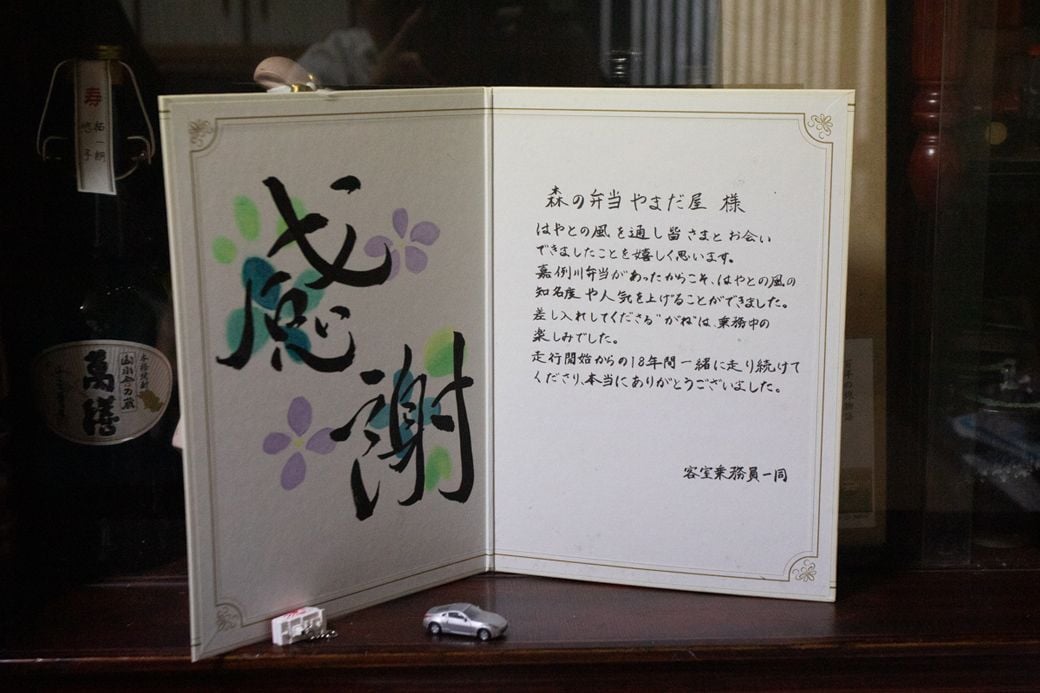 感謝
森の弁当 やまだ屋 様
はやとの風 を 通し 皆 さまと お会い
できましたことを嬉しく思います。
嘉例川弁当があったからこそ、はやとの風の
知名度 や人気を上げることができました。
差し入れしてくださる"がね"は、業務中の
楽しみでした。
走行開始からの18年間 一緒に走り続けて
くださり、本当にありがとうございました。
客室乗務員一同
寿
拓一朗
悠子
本格焼酎
萬膳